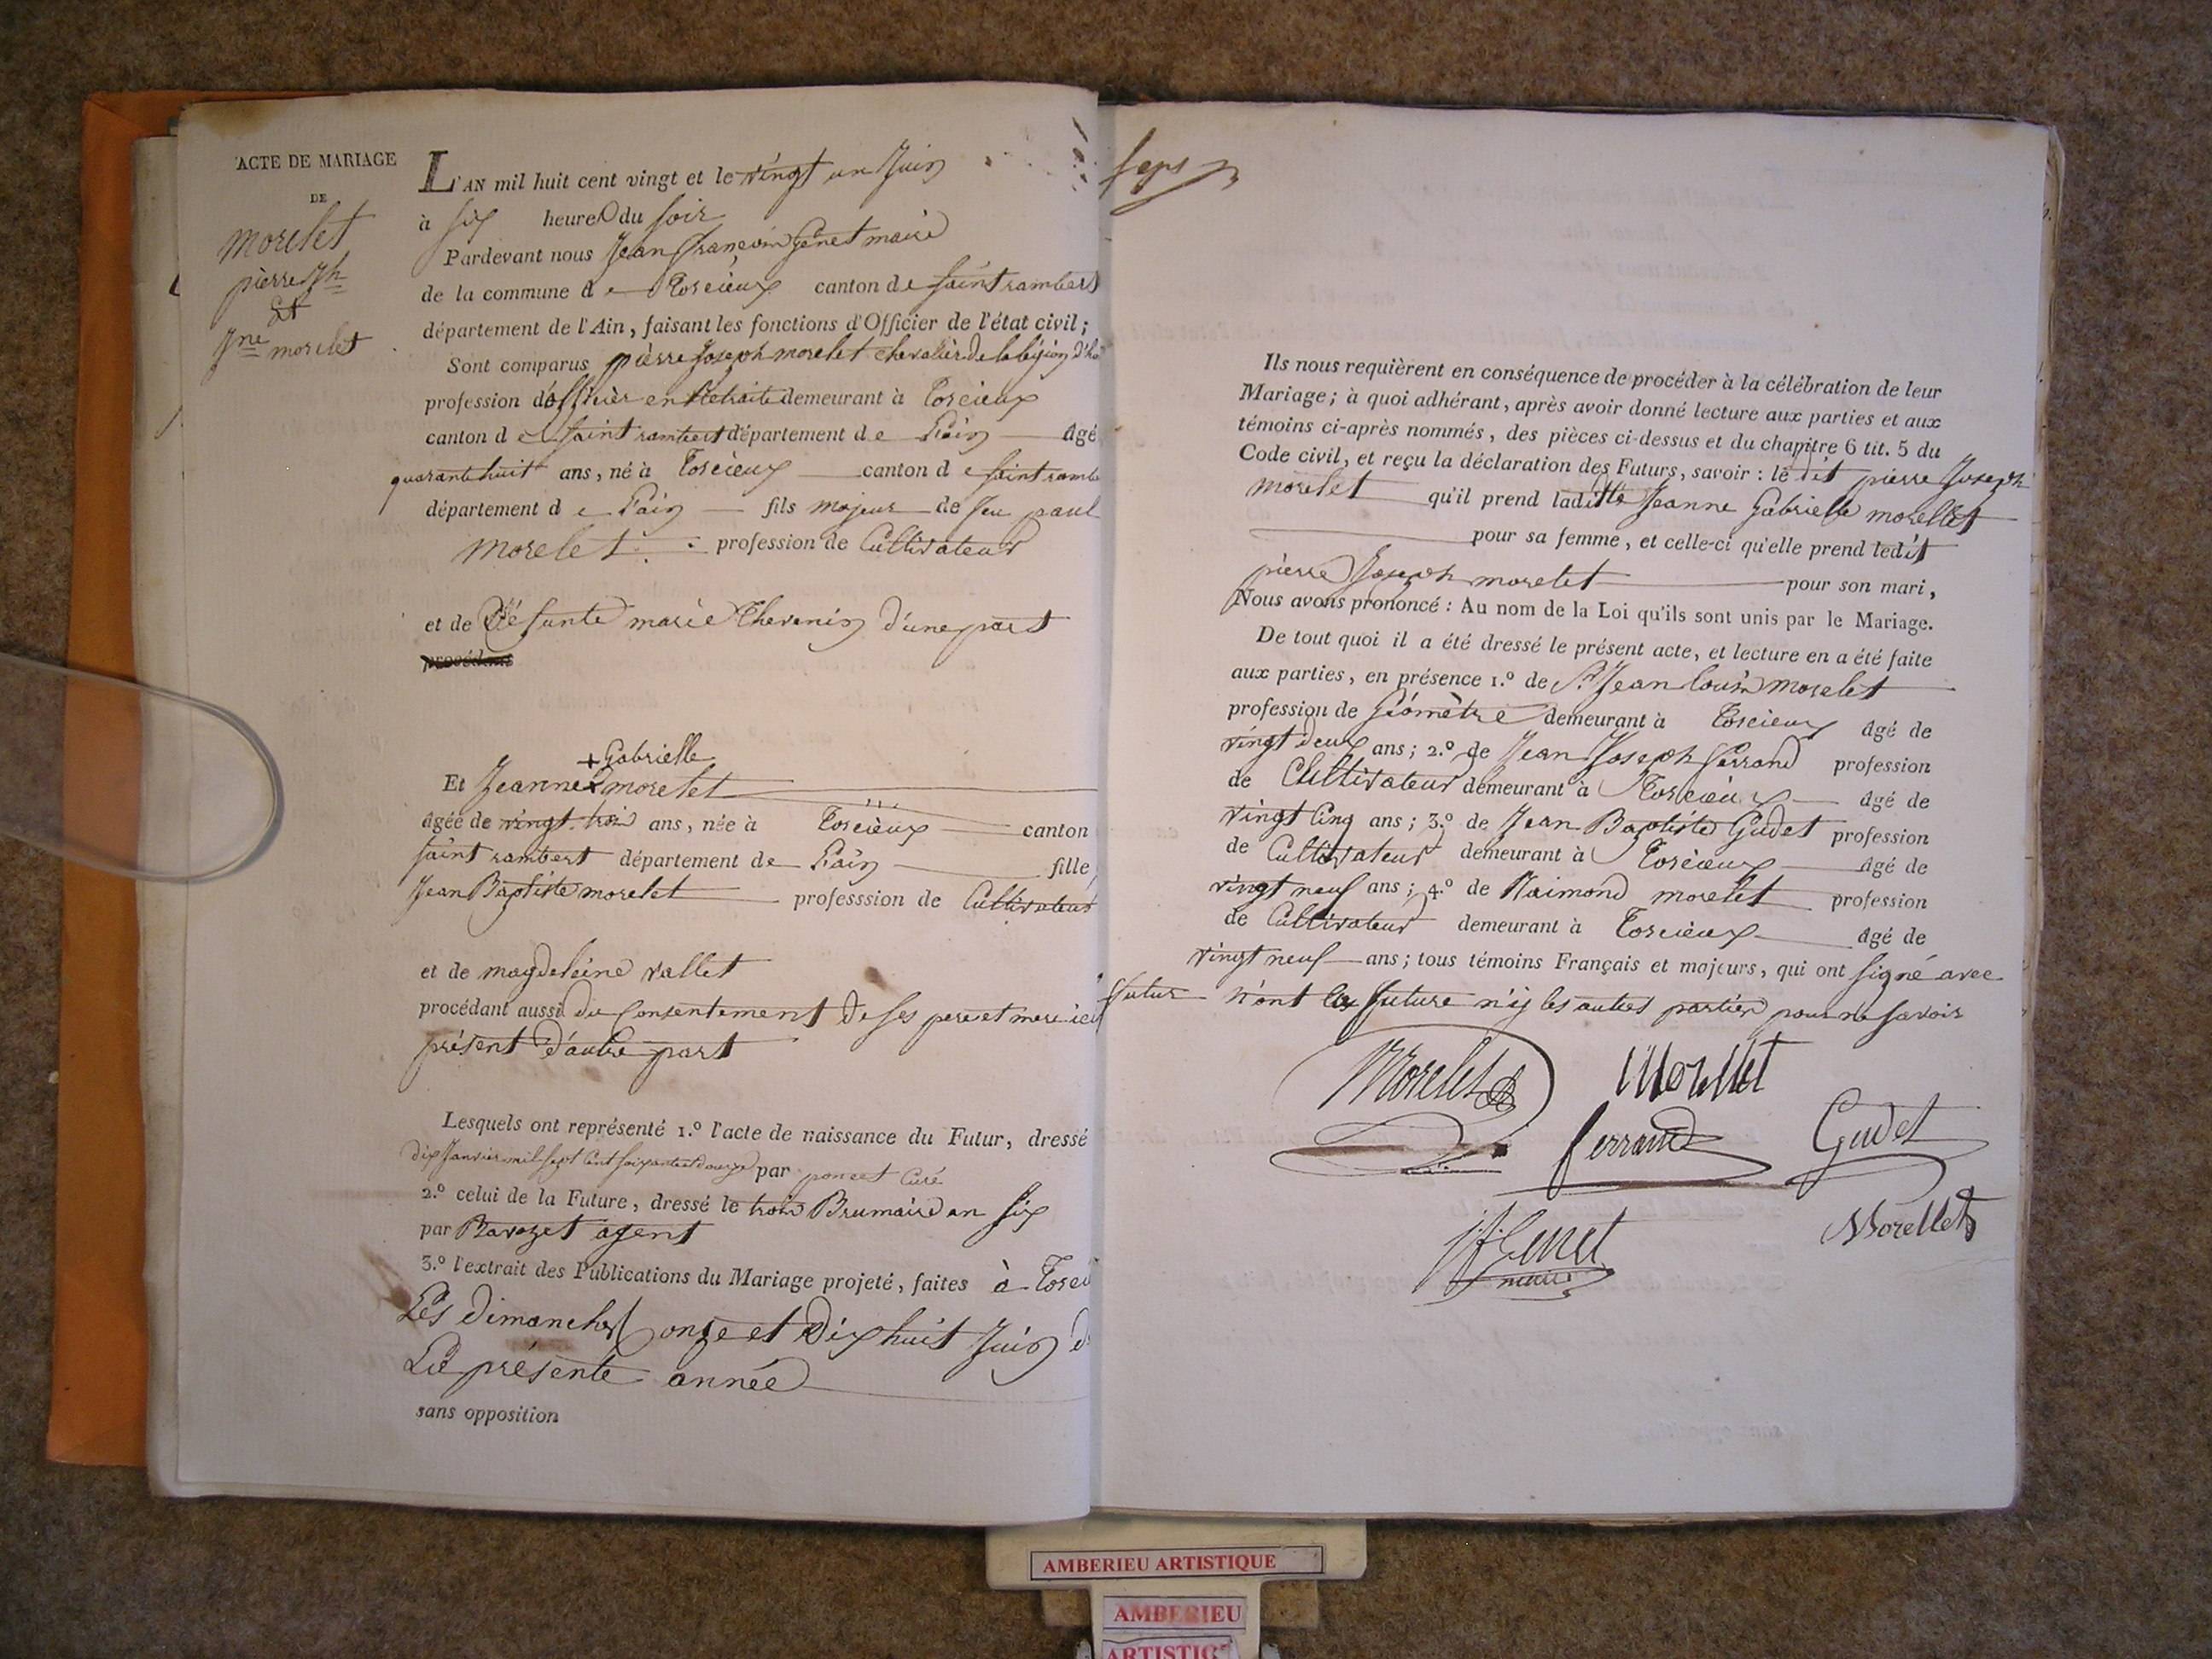 ACTE DE MARIAGE
DE
morelet
pierre Jph
et
Jne morelet
L'AN mil huit cent vingt et le vingt un Juin
à six heures du soir
Pardevant nous Jean françois Genet maire
de la commune de Torcieux canton de saint rambert
département de l'Ain, faisant les fonctions d'Officier de l'état civil;
Sont comparus pierre Joseph morelet chevalier de la légion d'ho
profession d'officier en Retraite demeurant à Torcieux
canton de saint rambert département de L'ain agé
quarante huit ans, né à Torcieux canton de saint rambe
département de L'ain fils majeur de feu paul
morelet profession de Cultivateur
et de Défunte marie Thevenin d'une part
procédant
+ Gabrielle
Et Jeanne + morelet
agée de vingt trois ans, née à Torcieux canton
saint rambert département de L'ain fille
Jean Baptiste morelet professsion de Cultivateur
et de magdeleine vallet
procédant aussi du Consentement de ses pere et mere ici
présent d'autre part
Lesquels ont représenté 1.º l'acte de naissance du Futur, dressé
dix Janvier mil sept cent soixante et douze par poncet Curé
2.º celui de la Future, dressé le trois Brumaire an six
par Bavozet agent
3.º l'extrait des Publications du Mariage projeté, faites à Torci
Les dimanches onze et Dix huit Juin d
La présente année
sans opposition
sept
Ils nous requièrent en conséquence de procéder à la célébration de leur
Mariage; à quoi adhérant, après avoir donné lecture aux parties et aux
témoins ci-après nommés, des pièces ci-dessus et du chapitre 6 tit. 5 du
Code civil, et reçu la déclaration des Futurs, savoir: le dit pierre Joseph
morelet qu'il prend ladite Jeanne Gabrielle morellet
pour sa femme, et celle-ci qu'elle prend ledit
pierre Joseph morelet pour son mari,
Nous avons prononcé: Au nom de la Loi qu'ils sont unis par le Mariage.
De tout quoi il a été dressé le présent acte, et lecture en a été faite
aux parties, en présence 1.º de Sr Jean louis morelet
profession de Géomètre demeurant à Torcieux agé de
vingt deux ans; 2.º de Jean Joseph ferrand profession
de Cultivateur demeurant à Torcieux agé de
vingt Cinq ans; 3.º de Jean Baptiste Gudet profession
de Cultivateur demeurant à Torcieux agé de
vingt neuf ans; 4.º de Raimond morelet profession
de Cultivateur demeurant à Torcieux agé de
vingt neuf ans; tous témoins Français et majeurs, qui ont signé avec
futur n'ont la future n'y les autres parties pour ne savoir
Morelet Morellet
ferrand Gudet
Morellet
JF Genet
maire
AMBERIEU ARTISTIQUE
AMBERIEU